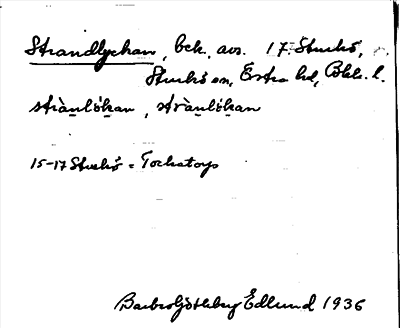 Strandlyckan, bek. avs. 17 Sturkö,
Sturkö sn, Östra hd, Blek. l.
strànlökan, strànlökan
15-17 Sturkö = Tockatorp
Barbro Götheberg Edlund 1936